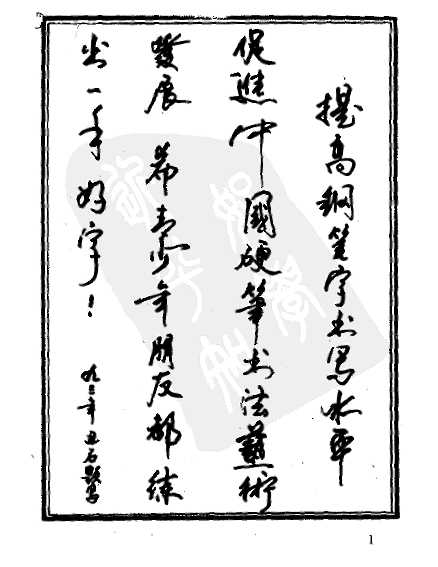 提高鋼筆字书写水平
促進中國硬筆书法藝術
發展 希青少年朋友都練
出一手好字！
九三年
1